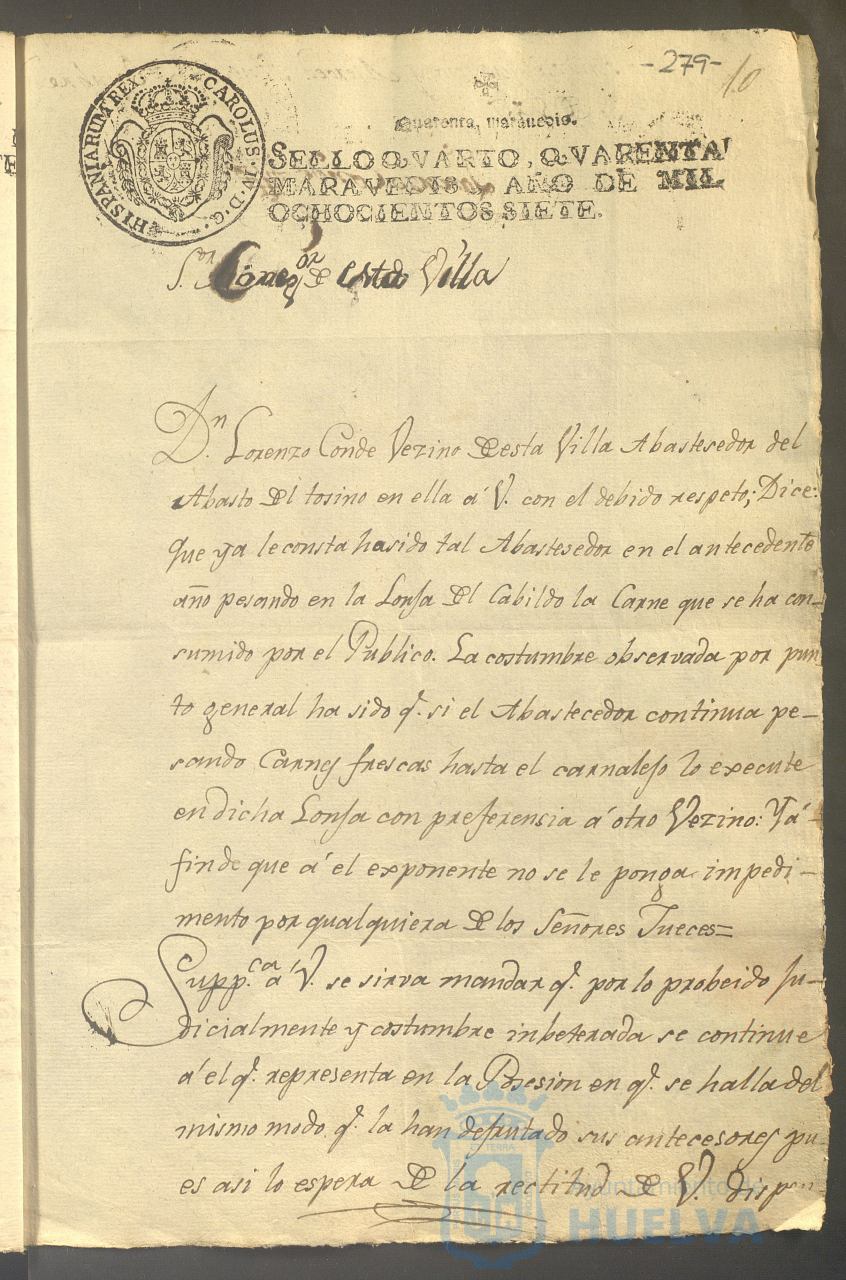 -279-
10
Quarenta, marauedis.
HISPANIARUM REX CAROLUS·IV·D·G·
SELLO QVARTO, QVARENTA
MARAVEDIS, AÑO DE MIL
OCHOCIENTOS SIETE.
S.or Correg.or de esta Villa
D.n Lorenzo Conde Vezino de esta Villa Abastesedor del
Abasto del tosino en ella á V. con el debido respeto; Dice:
Que ya le consta ha sido tal Abastesedor en el antecedente
año pesando en la Lonja del Cabildo la Carne que se ha con-
sumido por el Publico. La costumbre observada por pun
to general ha sido q.e si el Abastecedor continua pe-
sando Carnes frescas hasta el carnalejo lo execute
en dicha Lonja con preferensia á otro Vezino: Yá
fin de que á el exponente no se le ponga impedi-
mento por qualquiera de los Señores Jueces=
Supp.ca á V. se sirva mandar q.e por lo probeido Ju-
dicialmente y costumbre inbeterada se continue
á el q.e representa en la Posesion en q.e se halla del
mismo modo q.e la han desfrutado sus antecesores pu
es asi lo espera de la rectitud de V. Dispon
Ayuntamiento de
HUELVA